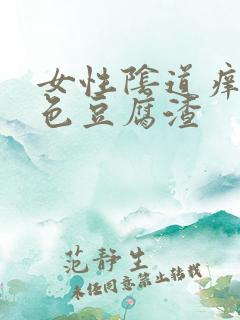 女性陰道痒
色豆腐渣
范静生
未经同意禁止转载